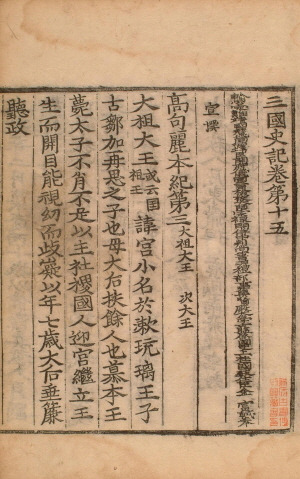 三國史記卷第十五
宣撰
高句麗本紀第三 大祖大王 次大王
大祖大王 或云國祖王 諱宮小名於漱琉璃王子
古鄒加再思之子也母大后扶餘人也慕本王
薨太子不肖不足以主社稷國人迎宮繼立王
生而開目能視幼而歧嶷以年七歲大后垂簾
聽政